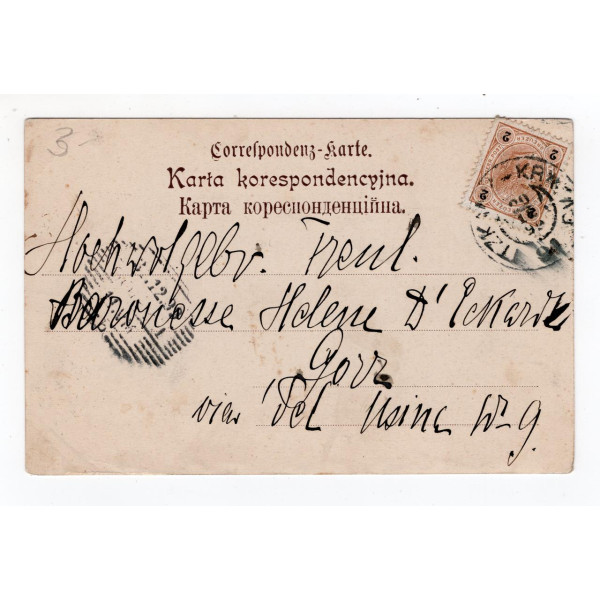 3-
Correspondenz-Karte.
Karta korespondencyjna.
Карта кореспонденційна.
2 2
Hochwolgebr. Freul.
Baronesse Helene D'Eckardt
Görz
via Del Usina Nr 9.
12